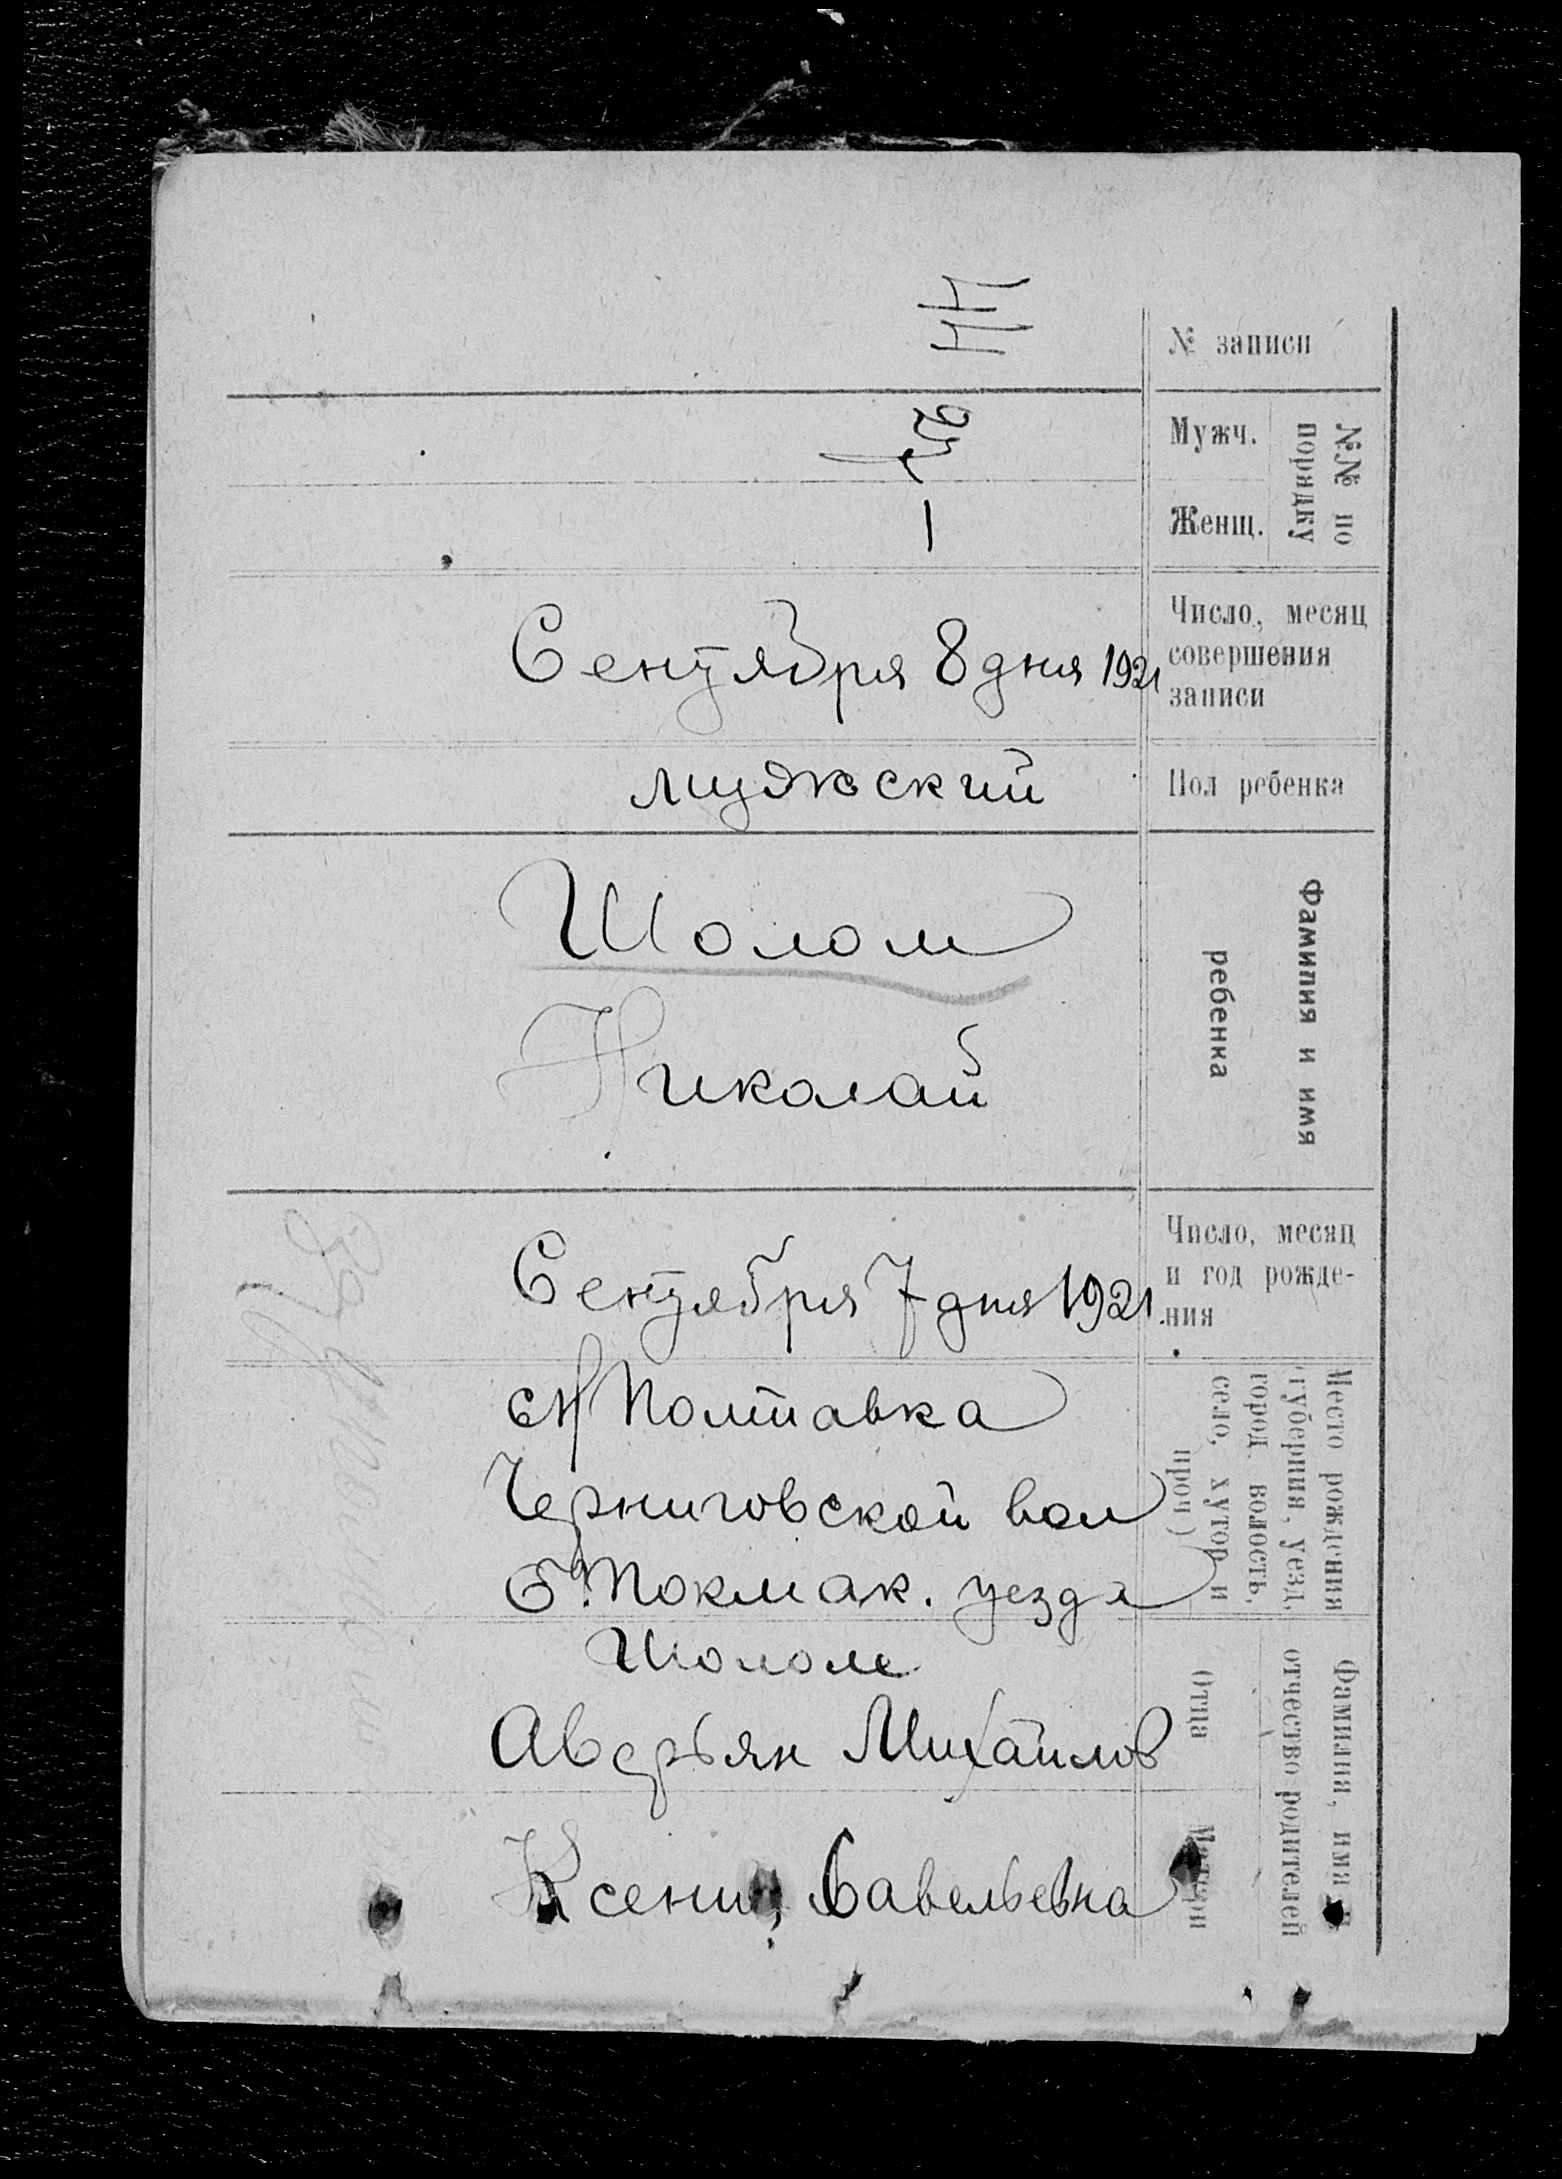 № записи
44
№№ по
порядку
Мужч.
Женщ.
—
Число, месяц
совершения
записи
Сентября 8 дня 1921
Пол ребенка
мужский
Фамилия и имя
ребенка
Шолом
Николай
Число, месяц
и год рожде-
ния
Сентября 7 дня 1921.
Место рождения
(губерния, уезд,
город, волость,
село, хутор и
проч)
с Н Полтавка
Черниговской вол
Б. Токмак. уезда
Фамилия, имя и
отчество родителей
Отца
Шолом
Аверьян Михайлов
Матери
Ксения Савельевна